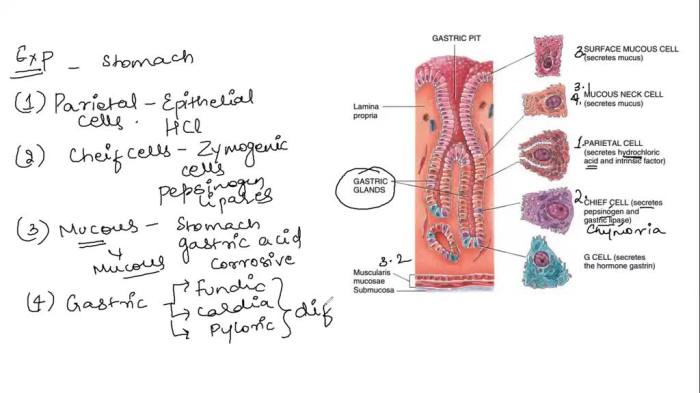 Exp - Stomach
(1) Parietal - Epithelial
cells. HCl
(2) Cheif cells - Zymogenic
cells
pepsinogen
lipases
(3) Mucous - Stomach
gastric acid
Mucous corrosive
(4) Gastric → Fundic
→ Cardia
→ Pyloric
dif
GASTRIC PIT
Lamina
propria
GASTRIC
GLANDS
3.2
Muscularis
mucosae
Submucosa
SURFACE MUCOUS CELL
(secretes mucus)
3.1
4. MUCOUS NECK CELL
(secretes mucus)
1. PARIETAL CELL
(secretes hydrochloric
acid and intrinsic factor)
2. CHIEF CELL (secretes
pepsinogen and
gastric lipase)
G CELL (secretes
the hormone gastrin)